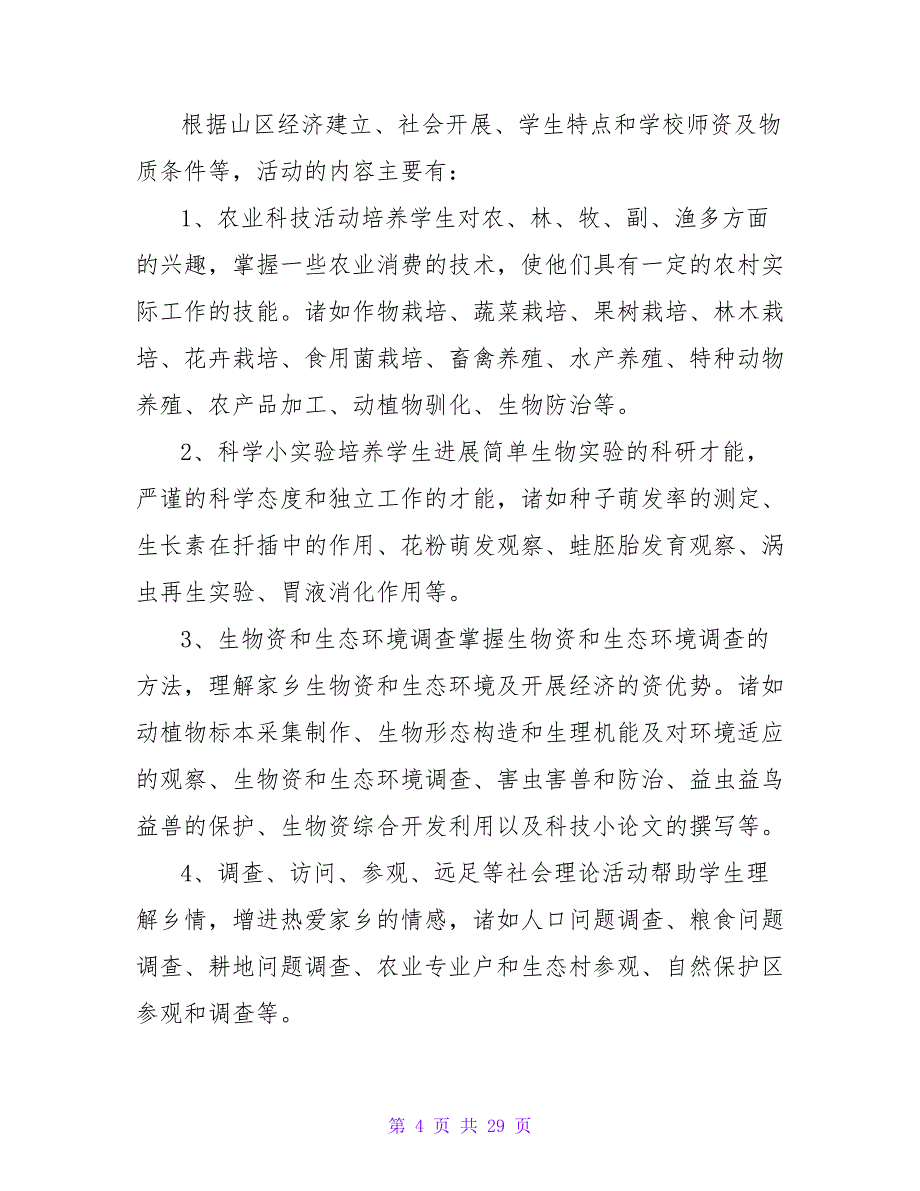 根据山区经济建立、社会开展、学生特点和学校师资及物
质条件等，活动的内容主要有：
1、农业科技活动培养学生对农、林、牧、副、渔多方面
的兴趣，掌握一些农业消费的技术，使他们具有一定的农村实
际工作的技能。诸如作物栽培、蔬菜栽培、果树栽培、林木栽
培、花卉栽培、食用菌栽培、畜禽养殖、水产养殖、特种动物
养殖、农产品加工、动植物驯化、生物防治等。
2、科学小实验培养学生进展简单生物实验的科研才能，
严谨的科学态度和独立工作的才能，诸如种子萌发率的测定、
生长素在扦插中的作用、花粉萌发观察、蛙胚胎发育观察、涡
虫再生实验、胃液消化作用等。
3、生物资和生态环境调查掌握生物资和生态环境调查的
方法，理解家乡生物资和生态环境及开展经济的资优势。诸如
动植物标本采集制作、生物形态构造和生理机能及对环境适应
的观察、生物资和生态环境调查、害虫害兽和防治、益虫益鸟
益兽的保护、生物资综合开发利用以及科技小论文的撰写等。
4、调查、访问、参观、远足等社会理论活动帮助学生理
解乡情，增进热爱家乡的情感，诸如人口问题调查、粮食问题
调查、耕地问题调查、农业专业户和生态村参观、自然保护区
参观和调查等。
第 4 页 共 29 页